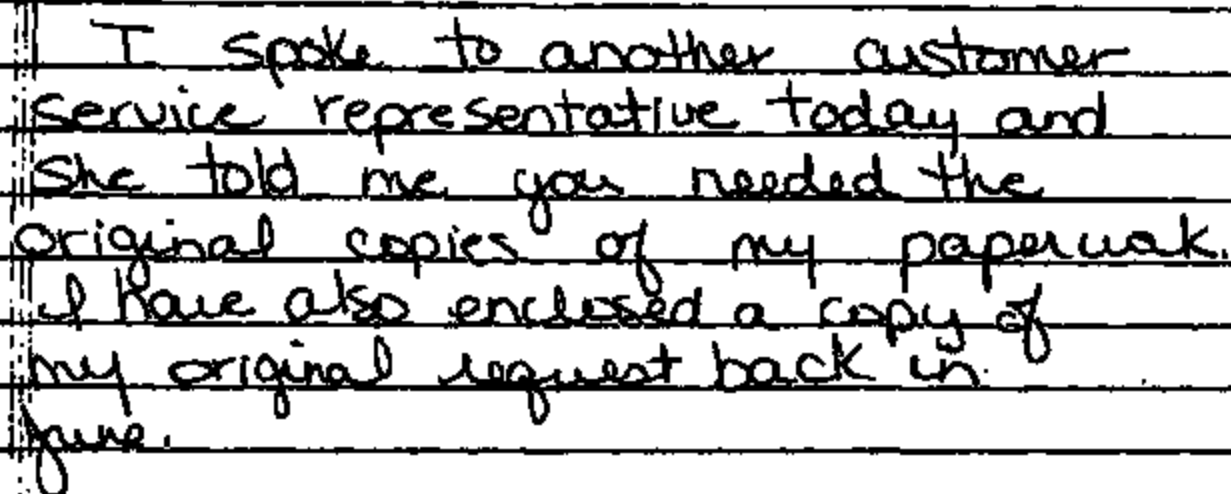 I spoke to another customer
service representative today and
she told me you needed the
original copies of my paperwork.
I have also enclosed a copy of
my original request back in
june.